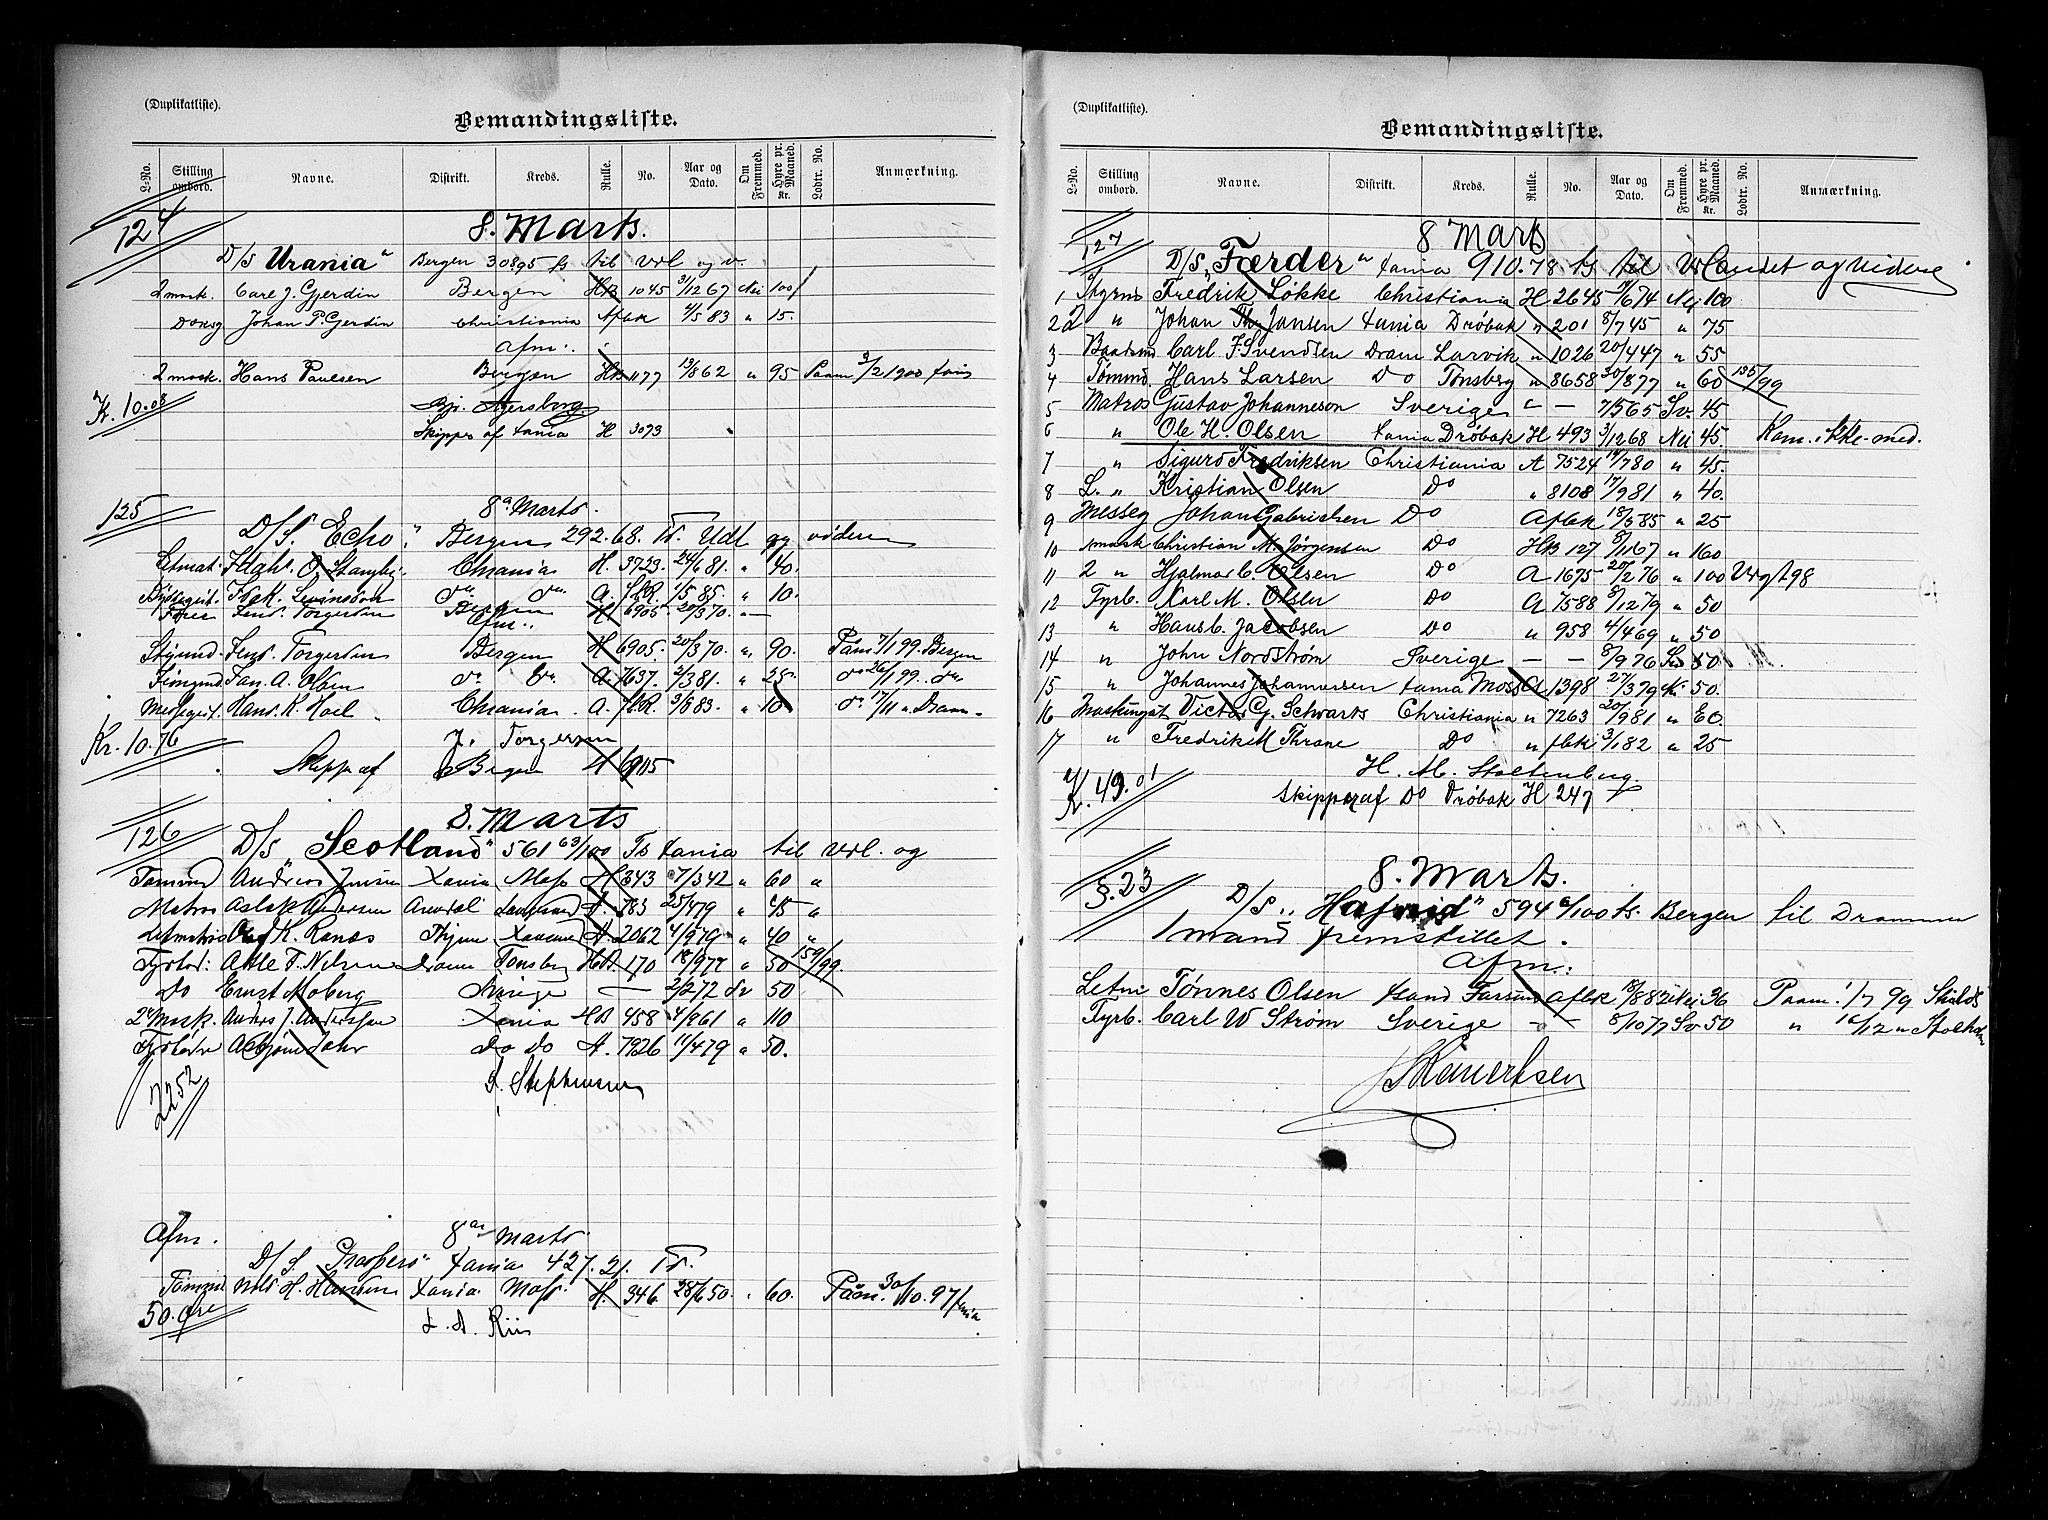 (Duplikatliste).
Bemandingsliste.
L-No. Stilling ombord. Navne. Distrikt. Kreds. Rulle. No. Aar og Dato. Om Fremmed. Hyre pr. Maaned. Kr. Lodtr. No. Anmærkning.
124 8. Marts.
D/S Urania" Bergen 308.95 ts til Udl og v.
2 mask. Carl J. Gjerdin Bergen HB 1045 3/12 67 Nei 100
Johan P. Gerdin Christiania Afbk 4/5 83 " 15.
Afm:.
2 mask. Hans Paulsen Bergen HB 1177 13/8 62 " 95 Paam 3/2 1900
Kr. 10.08
Skipper af Xania H 3073
125 8de Marts.
D/S. Echo" Bergen 292.68. Td. Udl og videre
Letmat. O. Stangby. Chrania H. 3723. 24/6 81. " 40.
Isak. Levinsson do do A. fbR. 1/5 85. " 10.
Jens. Torgersen Bergen H 6905. 20/3 70. —
Afm.:.
Styrmd. Jens. Torgersen Bergen H 6905. 20/3 70. " 90. Paam 7/1 99. Bergen
Jan. A. Olsen do do A. 7637. 2/3 81. " 25. do 26/1 99. do
Messegut. Hans. K. Hoel Chrania. A. fbR. 3/8 83. " 10 do 17/11 " Dram.
Kr. 10.76 J. Torgersen
Skipp af Bergen H 6905
126 8. Marts
D/S Scotland" 561 63/100 Ts Xania til Udl. og
Tømmd Andreas Jensen Xania Moss H 343 7/3 42 " 60 "
Matros Aslak Andersen Arendal Langesund A. 783 25/4 79 " 45 "
Letmatros Olaf K. Ranaas A 2062 4/9 79 " 40 "
Fyrbød: Atle T. Nilsen Dram Tønsberg HB 170 18/9 77 " 50 159/99.
Do Ernst Moberg Sverige — 2/2 72 Sv 50
2 Mask. Anders J. Anderssen Xania HB 458 4/9 61 " 110
Fyrbøder Asbjørn Dahr Do Do A. 7926 11/4 79 " 50.
S. Stephensen
2252
Afm. 8de Marts.
D/S. Prospero" Xania 427.21. Td.
Tømmd Nils H. Hansen Xania Moss. H. 346. 28/6 50. " 60. Paam. 30/10.97 Xania
50. Øre
L. A. Riis
(Duplikatliste).
Bemandingsliste.
L-No. Stilling ombord. Navne. Distrikt. Kreds. Rulle. No. Aar og Dato. Om Fremmed. Hyre pr. Maaned. Kr. Lodtr. No. Anmærkning.
127 8 Marts
D/S. "Færder" Xania 910.78 ts til Udlandet og videre.
1 Styrmd Fredrik Løkke Christiania H 2645 11/6 74 Nei 100
2d " Johan Jansen Xania Drøbak " 201 8/7 45 " 75
3 Baatsmd Carl F. Svendsen Dram Larvik " 1026 20/4 47 " 55
4 Tømmd. Hans Larsen Do Tønsberg " 8658 30/8 77 " 60 135/99
5 Matros Gustav Johanneson Sverige " — 7/5 65 Sv. 45
6 " Ole H. Olsen Xania Drøbak H 493 3/12 68 Nei 45. Kom. ikke. med.
7 " Sigurd Fredriksen Christiania A 7524 14/7 80 " 45.
8 L. " Kristian Olsen Do " 8108 17/9 81 " 40.
9 Messeg Johan Gabrielsen Do Afbk 18/5 85 " 25
10 1 mask Christian M. Jørgensen Do HB 127 8/11 67 " 160
11 2 " Hjalmar C. Olsen Do A 1675 20/2 76 " 100
12 Fyrb. Karl M. Olsen Do A 7588 8/12 79 " 50
13 " Hans C. Jacobsen Do " 958 4/4 69 " 50
14 " John Nordstrøm Sverige — — 8/9 76 Sv 50
15 " Johannes Johannessen Xania Moss A 1398 27/3 79 Nei 50.
16 Maskingut Victor G. Schwarts Christiania " 7263 20/9 81 " 60.
17 " Fredrik M Thrane Do " fbk 3/1 82 " 25
H. M. Stoltenberg.
Kr. 49.01 Skipper af Do Drøbak H 247
§. 23 8. Marts.
D/S.. Hafnid" 594 6/100 ts. Bergen til Drammen
1 mand fremstillet.
Afm:
Letm Tønnes Olsen Xsand Farsund Afbk 18/8 82 Nei 36 Paam. 1/7 99 Shields
Fyrb. Carl W Strøm Sverige — 8/10 77 Sv 50 " 16/12 " Stokholm